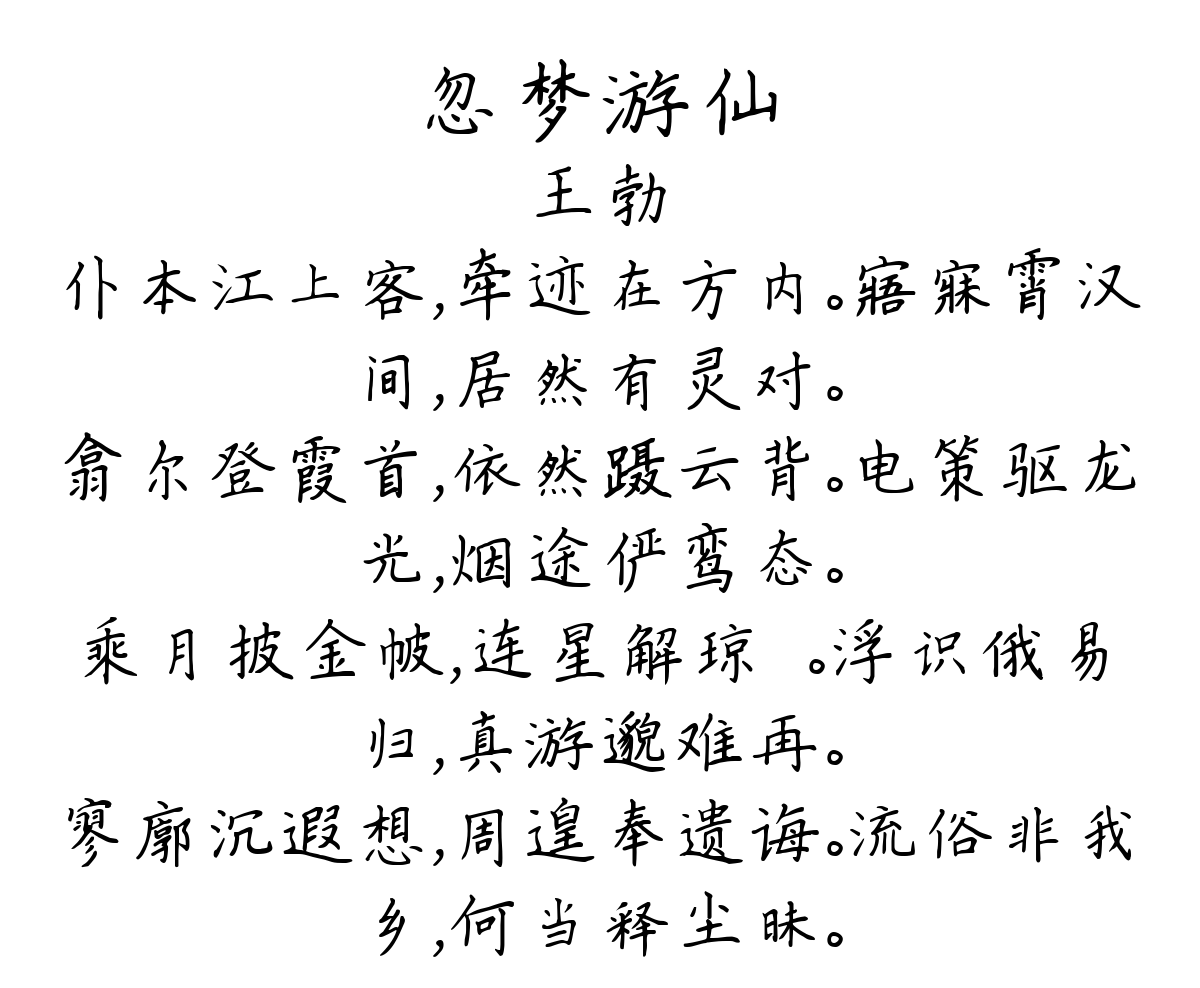 忽梦游仙
王勃
仆本江上客,牵迹在方内。寤寐霄汉
间,居然有灵对。
翕尔登霞首,依然蹑云背。电策驱龙
光,烟途俨鸾态。
乘月披金帔,连星解琼 。浮识俄易
归,真游邈难再。
寥廓沉遐想,周遑奉遗诲。流俗非我
乡,何当释尘昧。